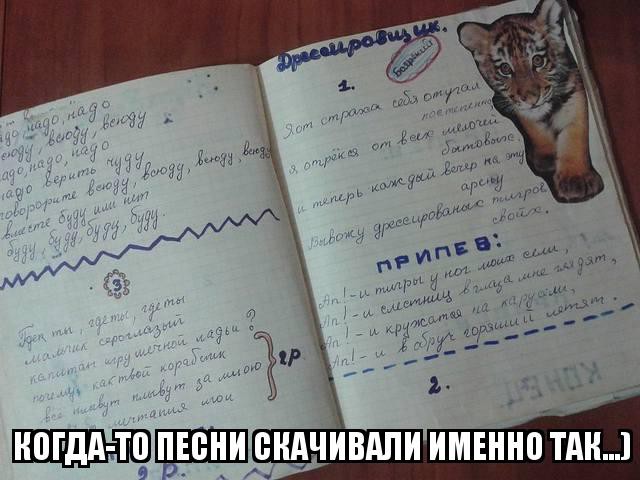 надо, надо, надо
всюду, всюду, всюду
надо, надо, надо
надо верить чуду
говорорите всюду, всюду, всюду, всюду
вместе буду или нет
буду, буду, буду, буду.
3
Где ты, где ты, где ты
мальчик сероглазый
капитан игрушечной ладьи?
почему, как твой кораблик
все плывут плывут за мною
мечтания мои
2р.
2 р.
Дрессировщик.
Боярский
1.
Я от страха себя отучал
постепенно
я отрёкся от всех мелочей
бытовых,
и теперь каждый вечер на эту
арену
Вывожу дрессированых тигров
своих.
ПРИПЕВ:
Ап! - и тигры у ног моих сели,
Ап! - и с лестниц в глаза мне глядят,
Ап! - и кружатся на карусели,
Ап! - и в обруч горящий летят.
2.
КОГДА-ТО ПЕСНИ СКАЧИВАЛИ ИМЕННО ТАК...)